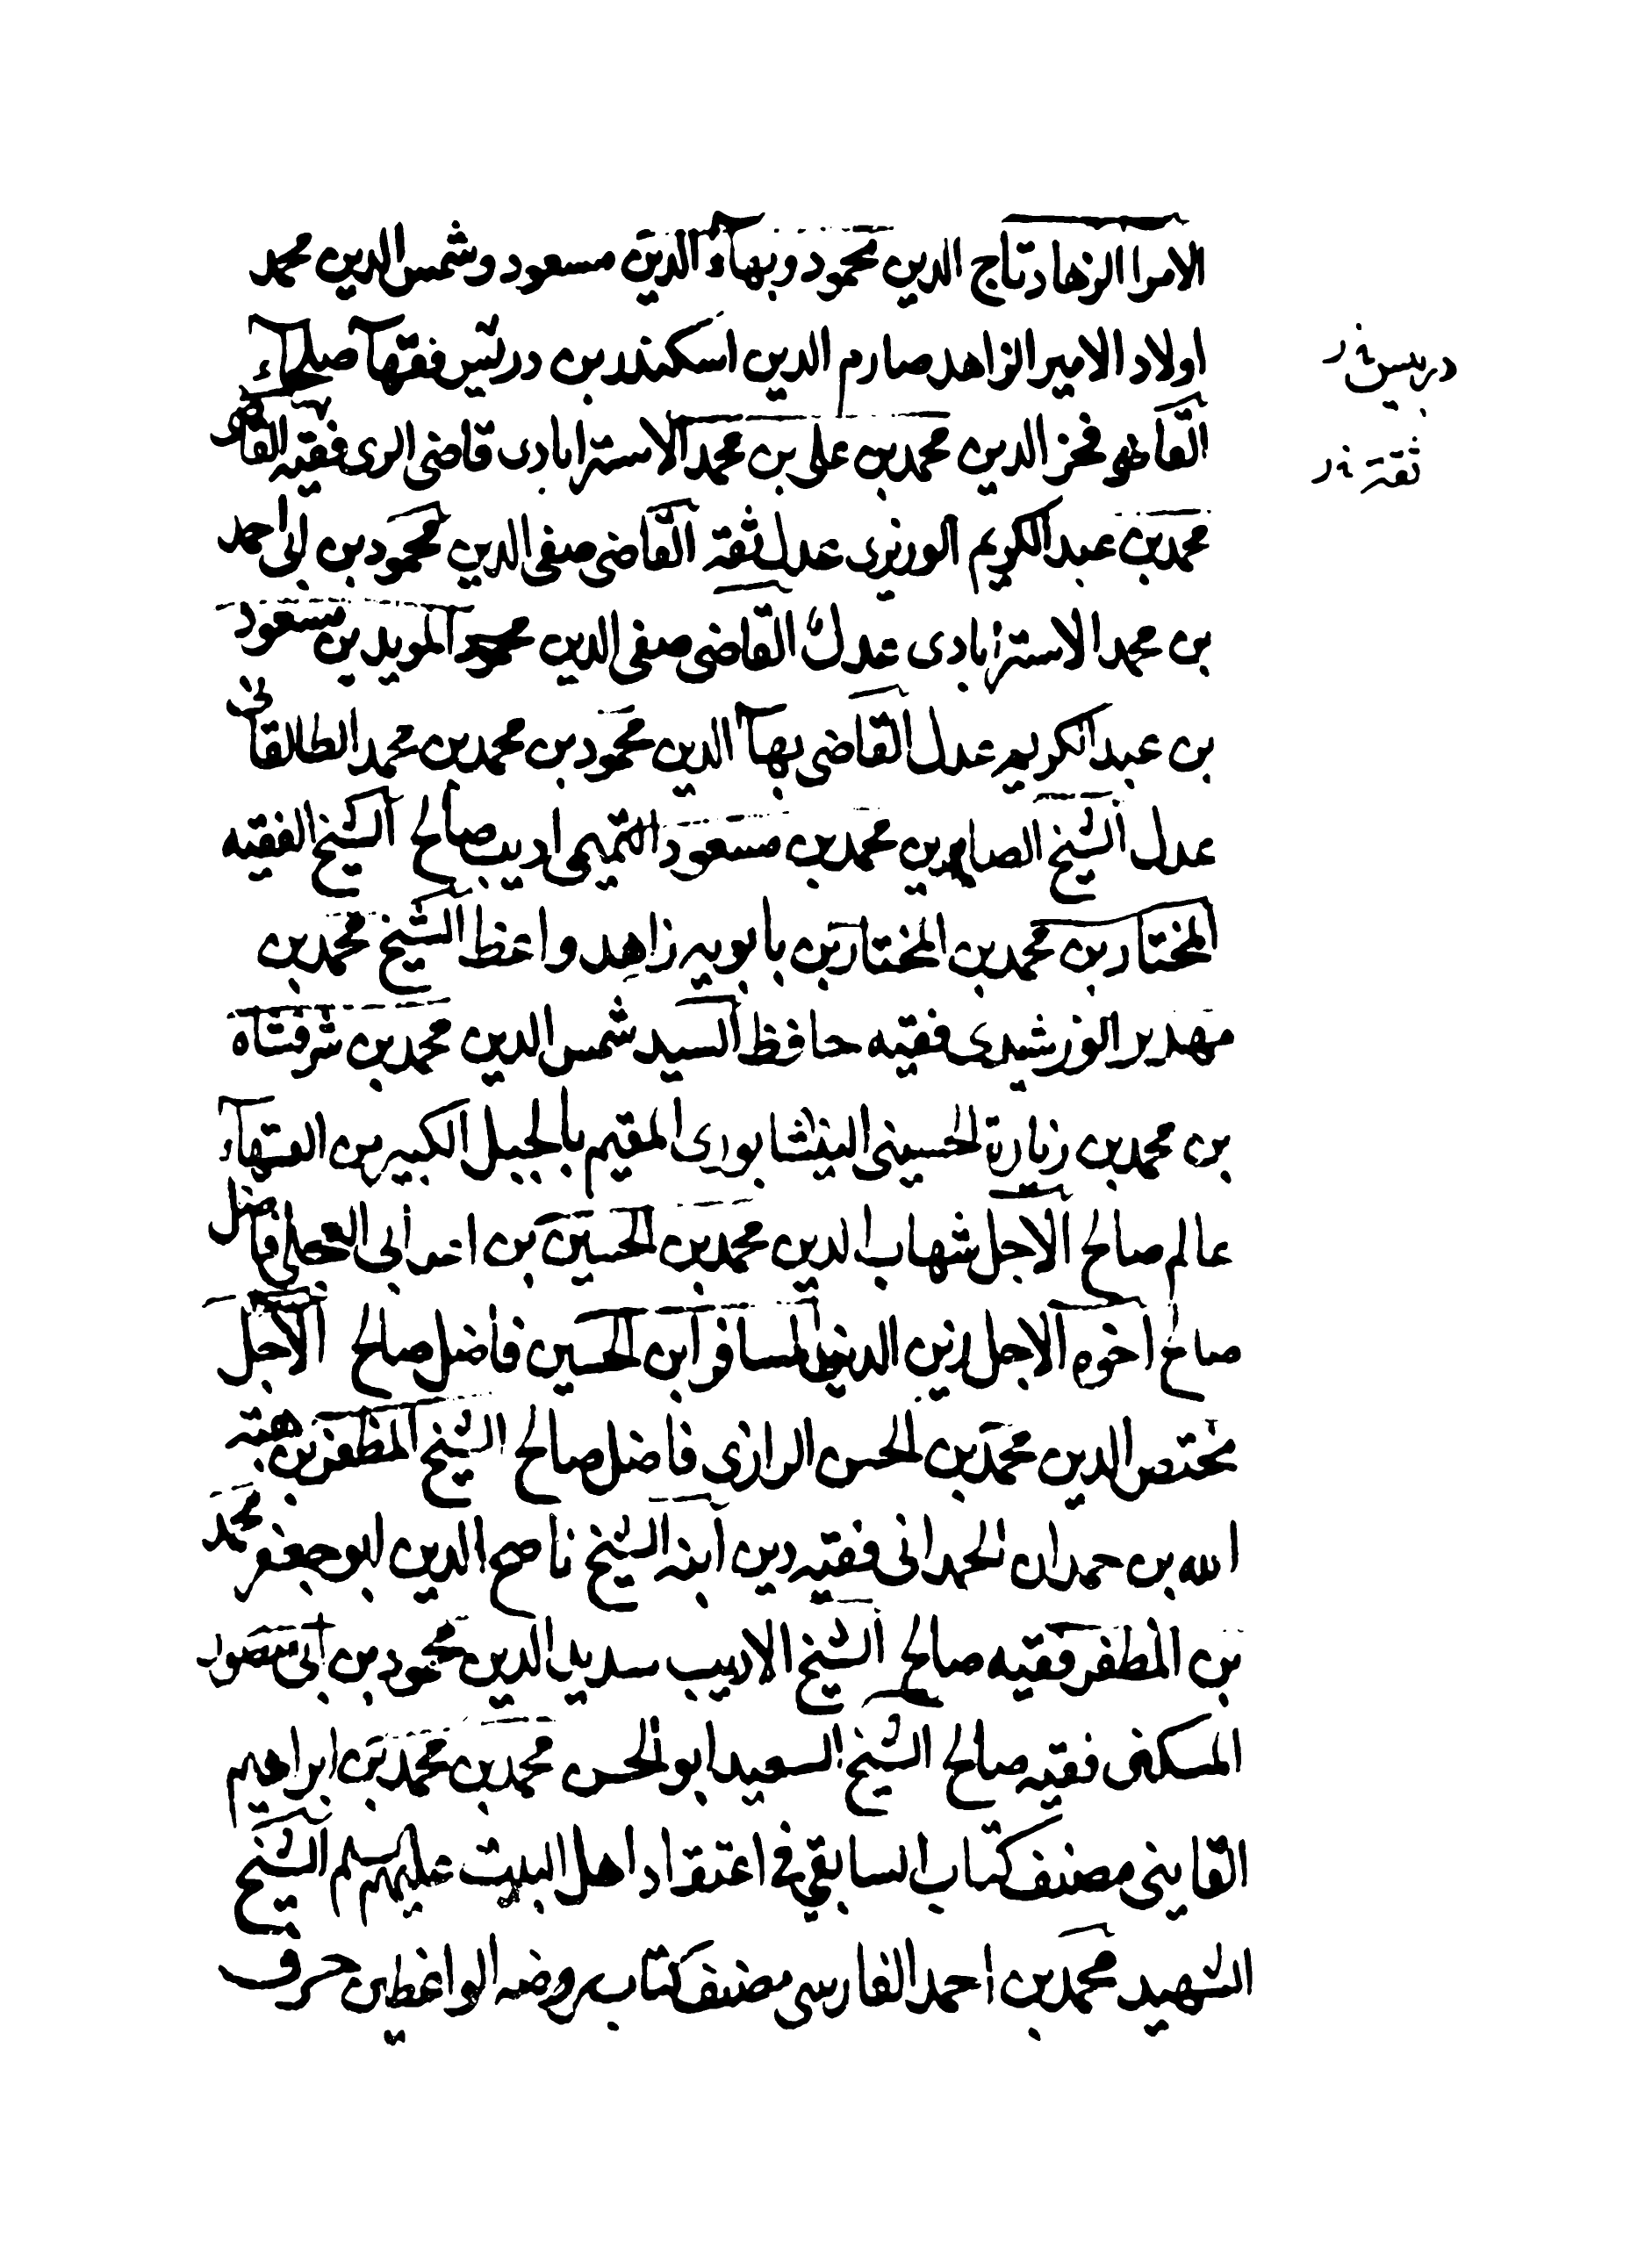 الامرا الزهاد تاج الدين محمود وبهآء الدين مسعود وشمس الدين محمد
اولاد الامير الزاهد صارم الدين اسكندر بن دربيس فقهآ صلحآء
القاضي فخر الدين محمد بن على بن محمد الاسترابادى قاضى الرى فقيه القاضى
محمد بن عبد الكريم الوزيرى عدل ثقة القاضى صفى الدين محمود بن ابى احمد
بن محمد الاسترابادى عدل القاضى صفى الدين المويد بن مسعود
بن عبد الكريم عدل القاضى بهآ الدين محمود بن محمد بن محمد الطالقانى
عدل الشيخ الصاين محمد بن مسعود التميمى اديب صالح الشيخ الفقيه
المختار بن محمد بن المختار بن بابويه زاهد واعظ الشيخ محمد بن
فقيه حافظ السيد شمس الدين محمد بن شرفشاه
بن محمد بن زيارة الحسينى النيشابورى المقيم بالجبل الكبير من الفقهآء
عالم صالح الاجل شهاب الدين محمد بن الحسين بن فاضل
صالح اخوه الاجل زين الدين المسافر ابن الحسين فاضل صالح الاجل
مختص الدين محمد بن الحسن الرازى فاضل صالح الشيخ المظفر بن هبة
الله بن حمدان الحمدانى فقيه دين ابنه الشيخ ناصح الدين ابو جعفر محمد
بن المظفر فقيه صالح الشيخ الاديب سديد الدين محمود بن ابى منصور
المسكنى فقيه صالح الشيخ السعيد ابو الحسن محمد بن محمد بن ابراهيم
القاينى مصنف كتاب السابقي في اعتقاد اهل البيت عليهم سلم الشيخ
الشهيد محمد بن احمد الفارسى مصنف كتاب روضه الواعظين حرف
دربيس نه ر
ثقة نه ر